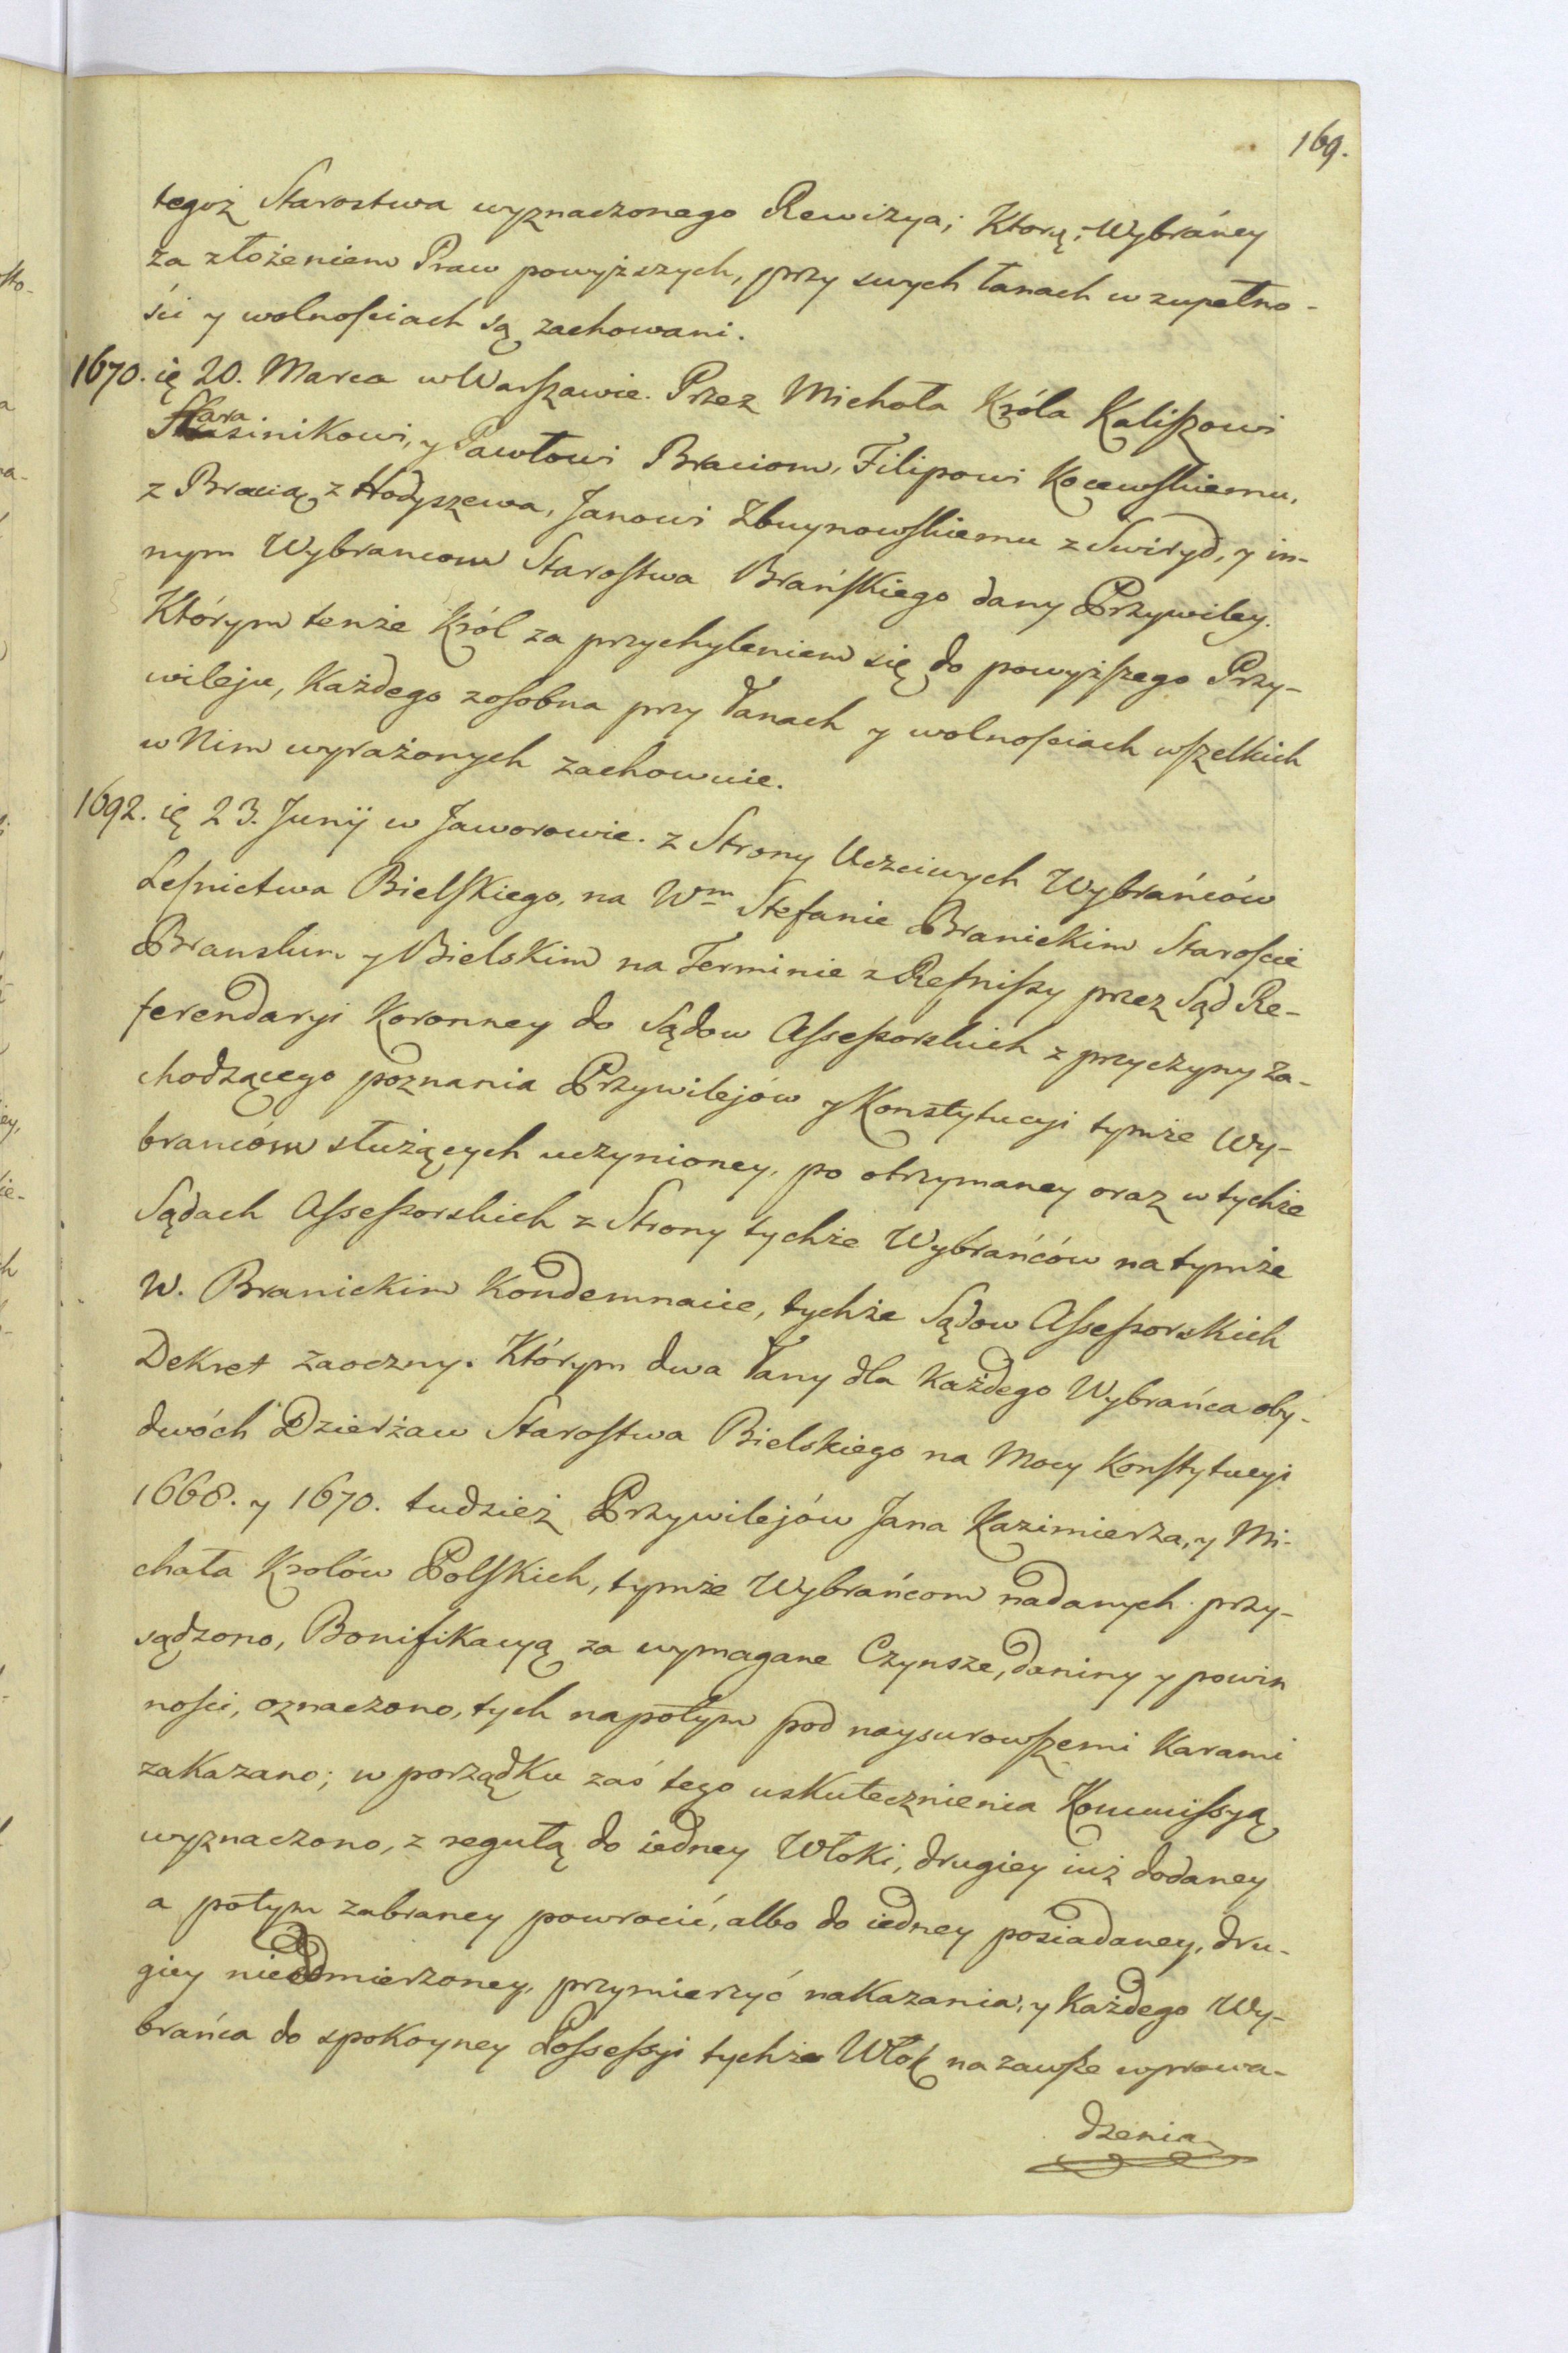 169.
tegoż Starostwa wyznaczonego Rewizya; Ktorą: Wybráney
za złożeniem Praw powyższych, przy swych łanach w zupełno-
ści y wolnościach są zachowani.
1670. ię 20. Marca w Warszawie. Przez Michała Króla Kaliszowi
Harasinikowi, y Pawłowi Braciom, Filipowi Kocewskiemu,
z Bracią z Hodyszewa, Janowi Zbuynowskiemu z Swiryd, y in-
nym Wybrancom Starostwa Brańskiego dany Przywiley.
Którym tenże Król za przychyleniem się do powyższego Przy-
wileju, Każdego zosobna przy Łanach y wolnościach wszelkich
w Nim wyrażonych zachowuie.
1692. ię 23. Junij w Jaworowie. z Strony Uczciwych Wybrańców
Leśnictwa Bielskiego, na Wm Stefanie Branickim Staroście
Branskim y Bielskim na Terminie z Remissy przez Sąd Re-
ferendaryi Koronney do Sądow Assessorskich z przyczyny za-
chodzącego poznania Przywilejów y Konstytucyi tymże Wy-
brańcóm służących uczynioney, po otrzymaney oraz w tychże
Sądach Assessorskich z Strony tychże Wybrańców na tymże
W. Branickim Kondemnacie, tychże Sądow Assessorskich
Dekret zaoczny. Którym dwa Łany dla Każdego Wybrańca oby-
dwóch Dzierżaw Starostwa Bielskiego na Mocy Konstytucyi
1668. y 1670. tudzież Przywilejów Jana Kazimierza, y Mi-
chała Krolów Polskich, tymże Wybrańcom nadanych przy-
sądzono, Bonifikacyą za wymagane Czynsze, daniny y powin
ności, oznaczono, tych napotym pod naysurowszemi Karami
zakazano; w porządku zaś tego uskutecznienia Kommissyą
wyznaczono, z regułą do iedney Włoki, drugiey iuż dodaney
a potym zabraney powrocić, albo do iedney posiadaney, dru-
giey nieodmierzoney, przymierzyć nakazania, y Każdego Wy-
brańca do spokoyney Possessyi tychże Włok na zawsze wprowa-
dzenia